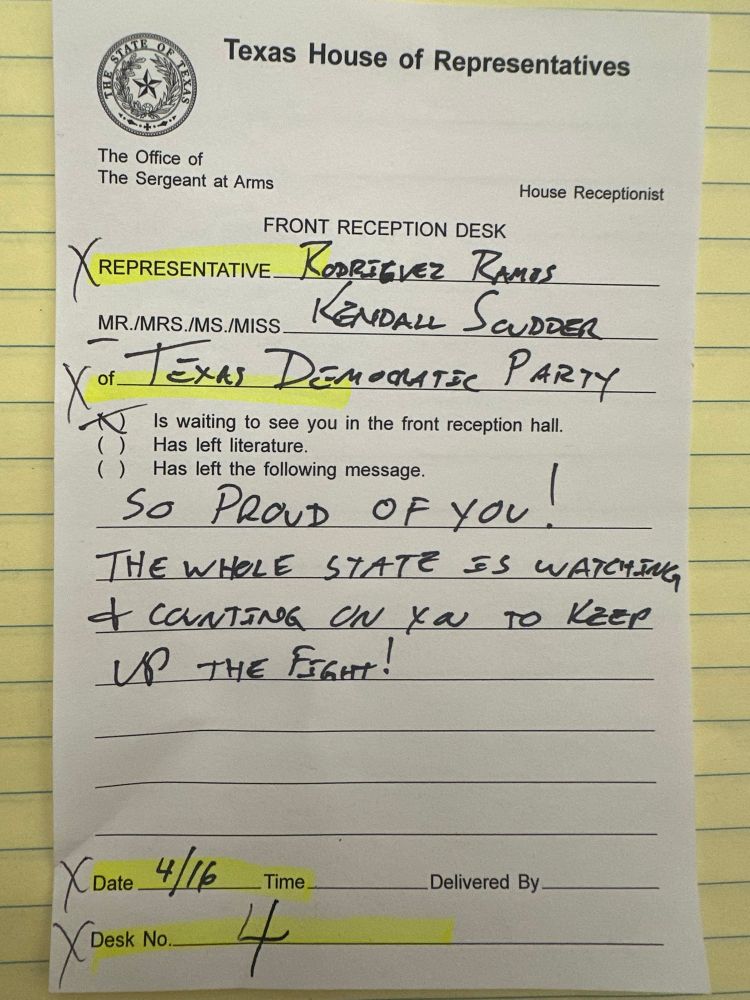 THE STATE OF TEXAS
Texas House of Representatives
The Office of
The Sergeant at Arms
House Receptionist
FRONT RECEPTION DESK
X REPRESENTATIVE RODRIGUEZ RAMOS
MR./MRS./MS./MISS KENDALL SCUDDER
X of TEXAS DEMOCRATIC PARTY
(X) Is waiting to see you in the front reception hall.
( ) Has left literature.
( ) Has left the following message.
SO PROUD OF YOU!
THE WHOLE STATE IS WATCHING
& COUNTING ON YOU TO KEEP
UP THE FIGHT!
X Date 4/16 Time Delivered By
X Desk No. 4